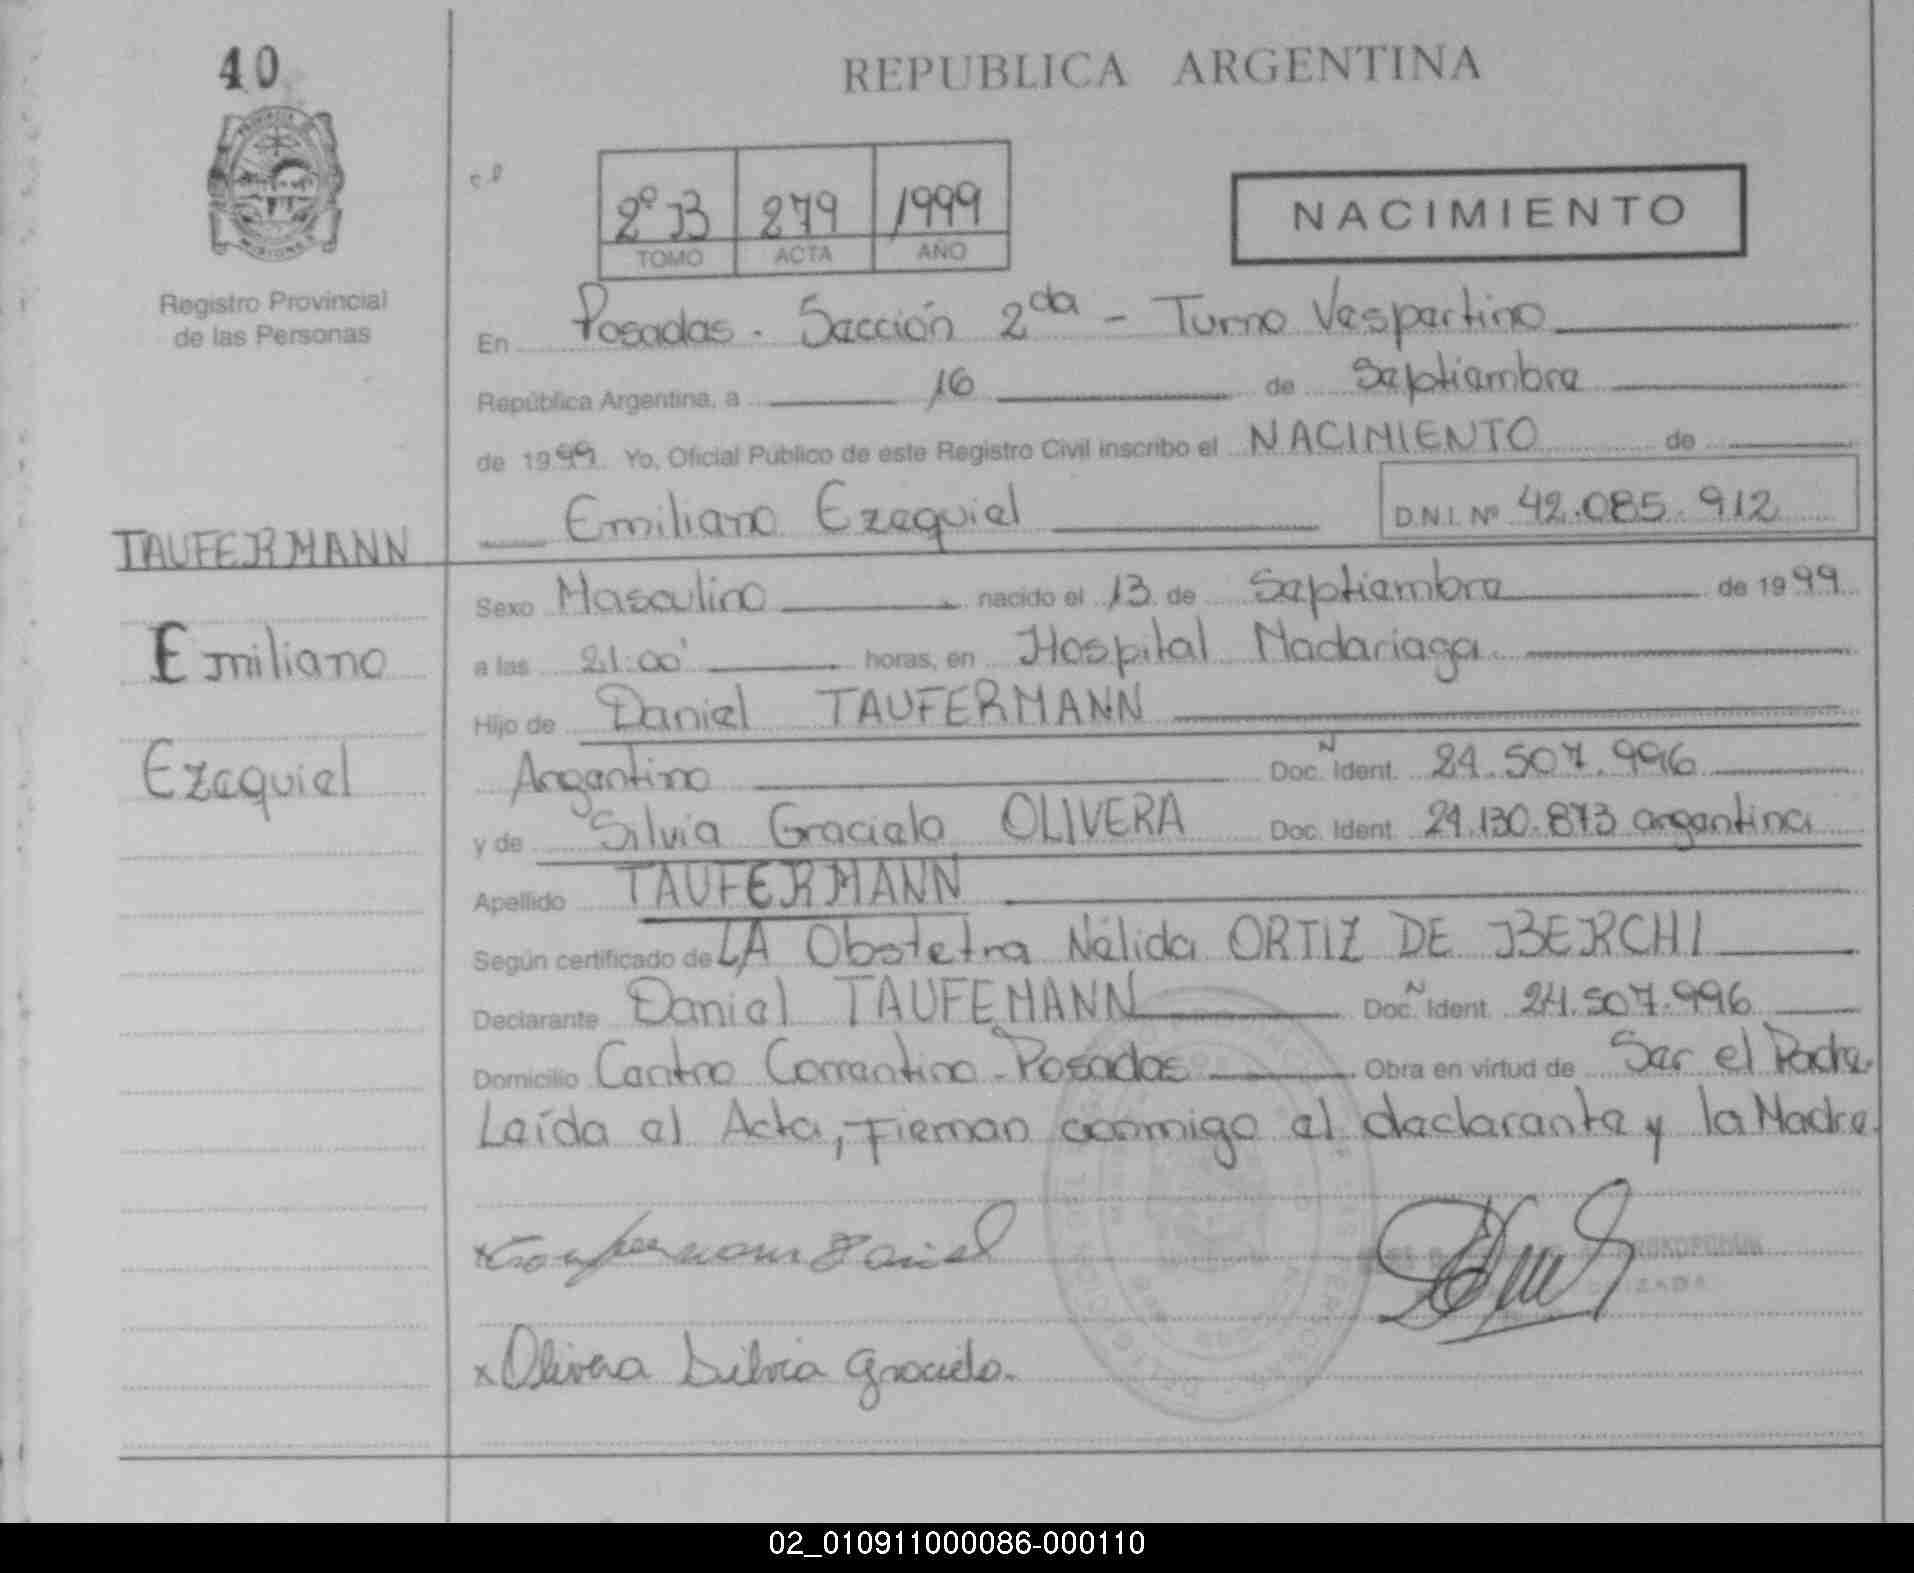 40
REPUBLICA ARGENTINA
2º B 279 1999
TOMO ACTA AÑO
NACIMIENTO
Registro Provincial
de las Personas
En Posadas - Sección 2da - Turno Vespertino
República Argentina, a 16 de Septiembre
de 1999 Yo, Oficial Público de este Registro Civil inscribo el NACIMIENTO de
Emiliano Ezequiel D.N.I. Nº 42.085.912
TAUFERMANN
Emiliano
Ezequiel
Sexo Masculino nacido el 13 de Septiembre de 1999
a las 21:00 horas, en Hospital Madariaga
Hijo de Daniel TAUFERMANN
Argentino Doc. N Ident. 24.507.996
y de Silvia Graciela OLIVERA Doc. Ident. 24.130.873 argentina
Apellido TAUFERMANN
Según certificado de LA Obstetra Nélida ORTIZ DE BERCHI
Declarante Daniel TAUFEMANN Doc. N Ident. 24.507.996
Domicilio Centro Correntino - Posadas Obra en virtud de Ser el Padre.
Leída el Acta, Firman conmigo el declarante y la Madre.
x Taufermann Daniel
x Olivera Silvia Graciela.
02_010911000086-000110